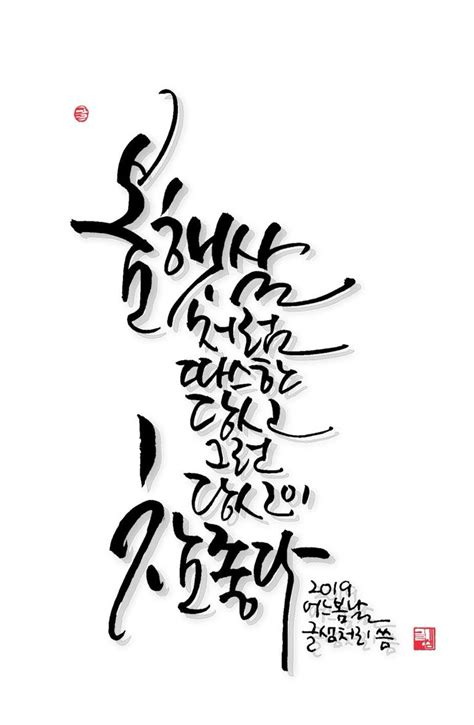 봄햇살
처럼
따스한
당신
그런
당신이
참 좋다
2019
어느 봄날
글샘처리 씀